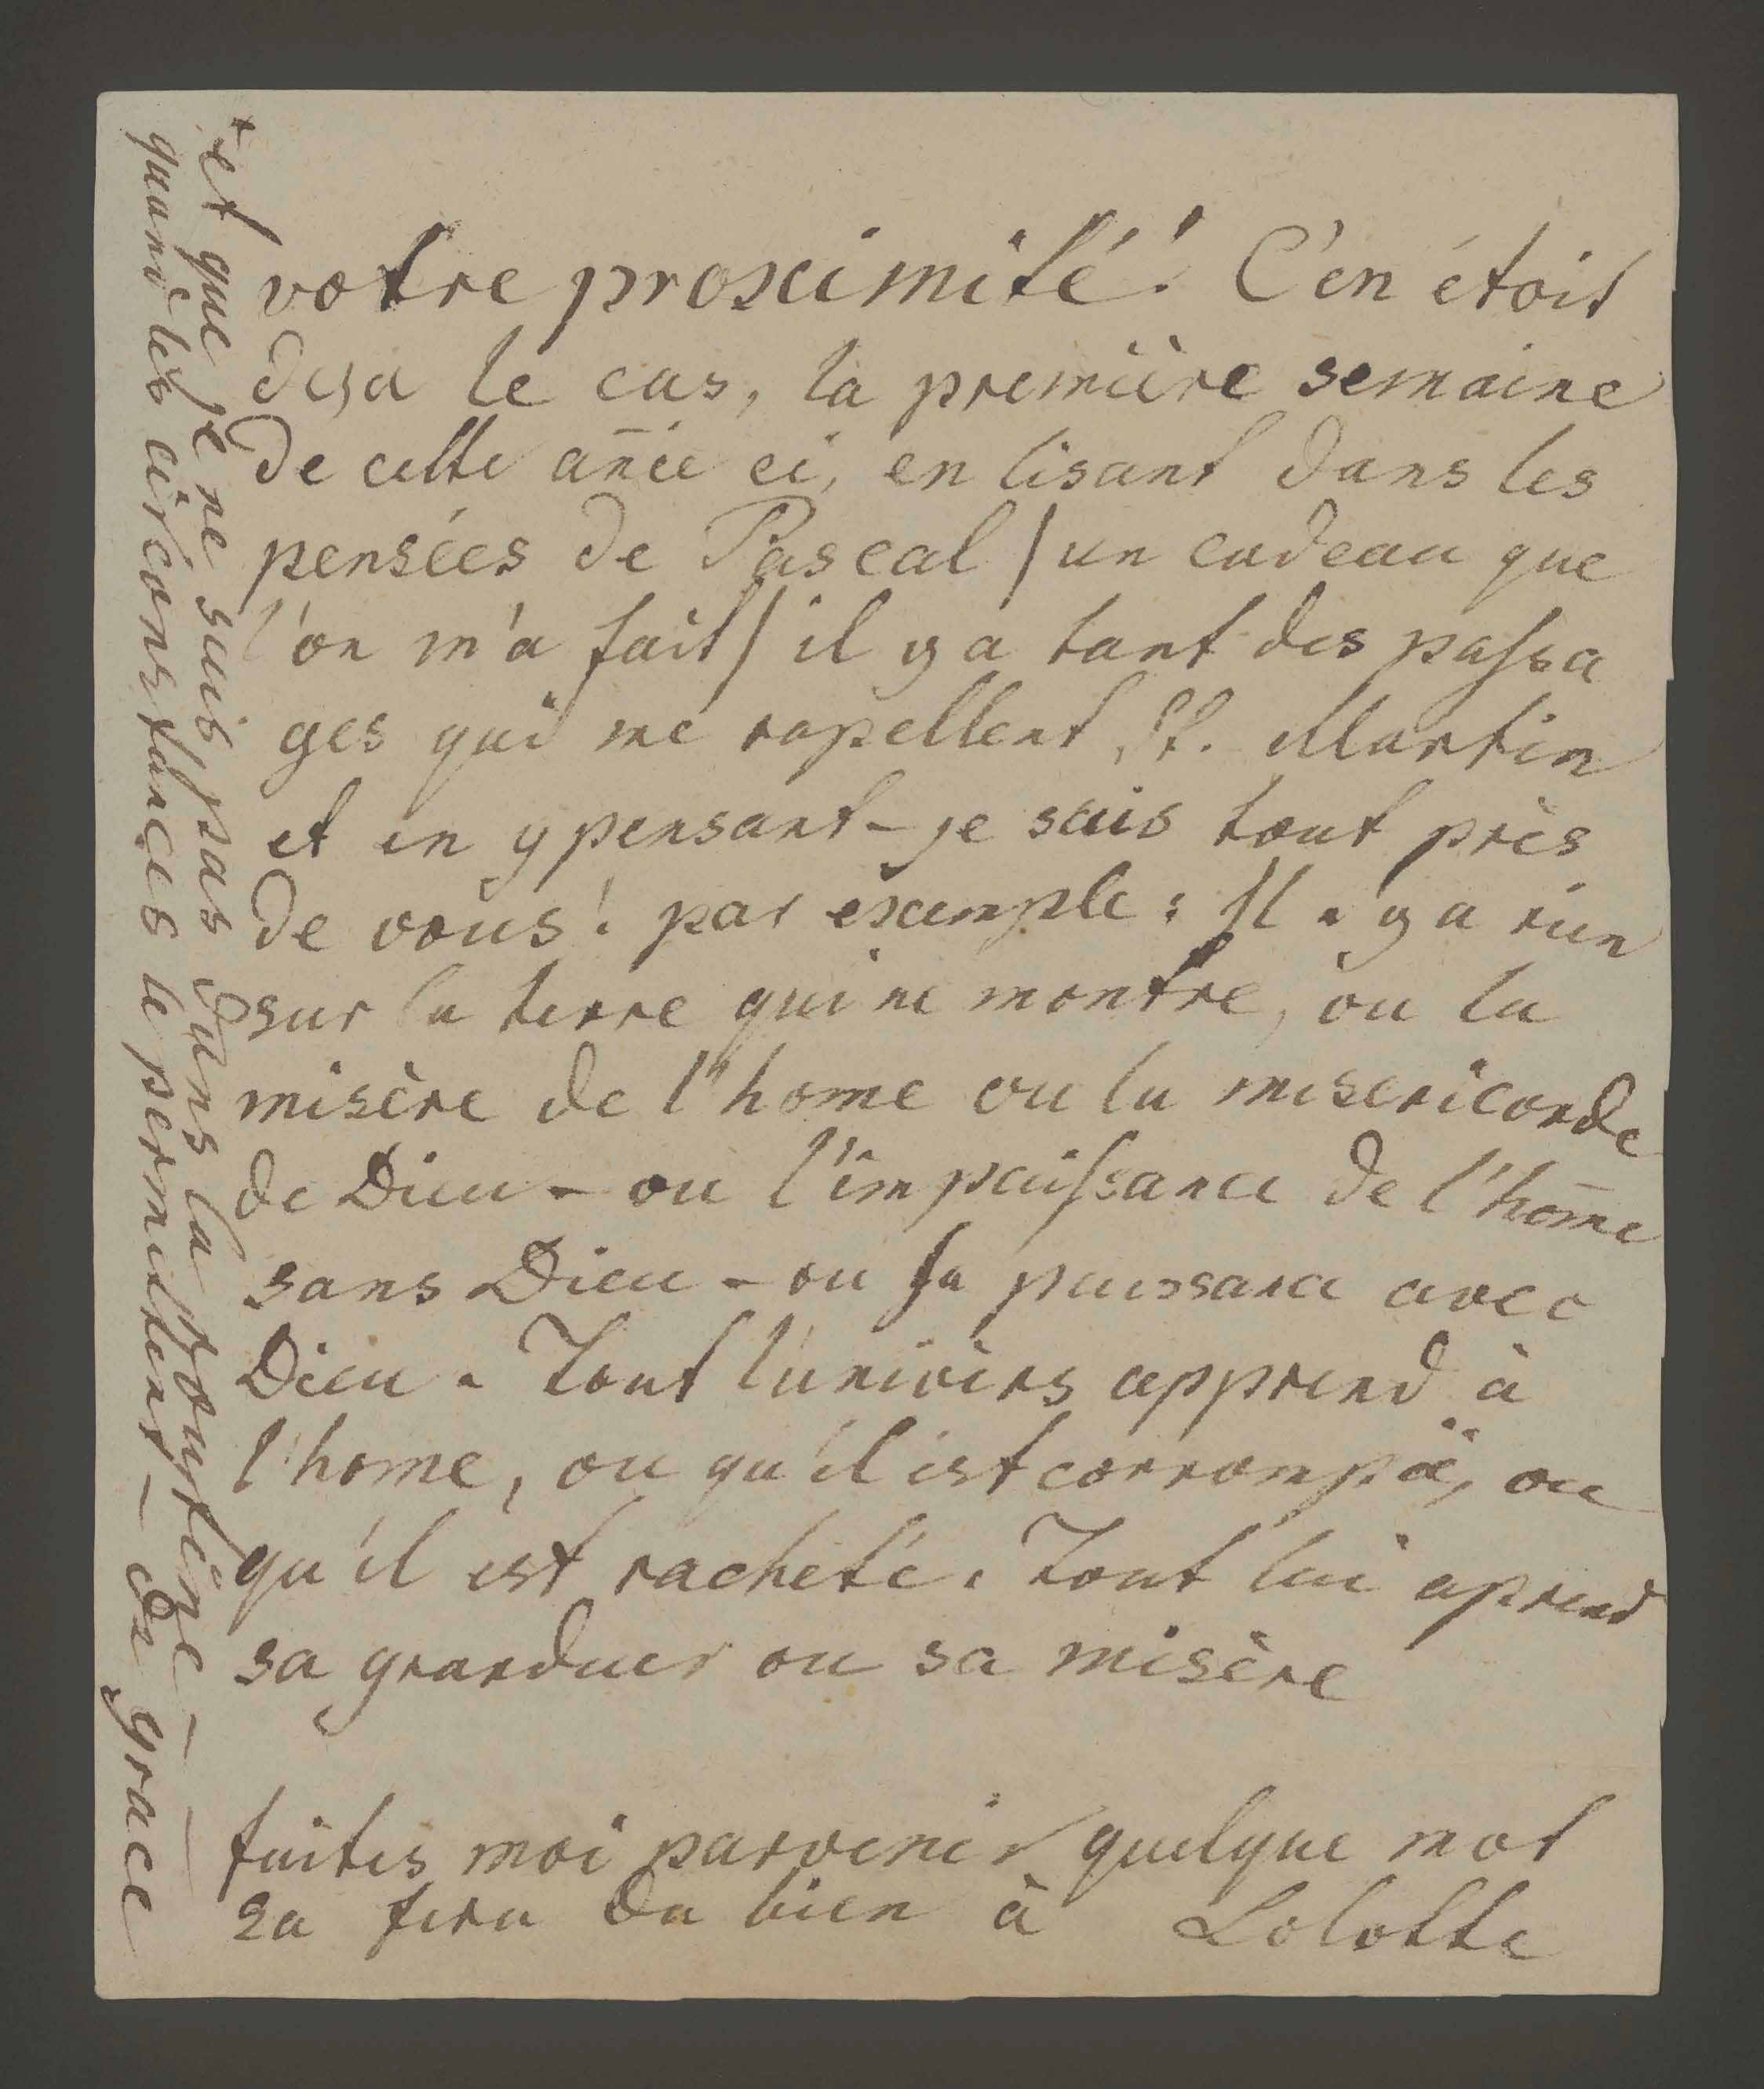 votre proximité! C'en étoit
deja le cas, la première semaine
de cette an̄ée ci, en lisant dans les
pensées de Pascal / un cadeau que
l'on m'a fait / il y a tant des passa
ges qui me rapellent St. Martin
et en y pensant - je suis tout près
de vous! par exemple: Il n'y a rien
sur la terre qui ne montre, ou la
misère de l'home ou la misericorde
de Dieu - ou l'impuissance de l'hom̄e
sans Dieu - ou sa puissance avec
Dieu. Tout l'univers apprend à
l'home, ou qu'il est corrompü, ou
qu'il est racheté. Tout lui aprend
sa granduer ou sa misère
faites moi parvenir quelque mot
sa fera du bien à Lolotte
+ et que je ne suis pas dans la
quand les circonstances le permettent - de grace